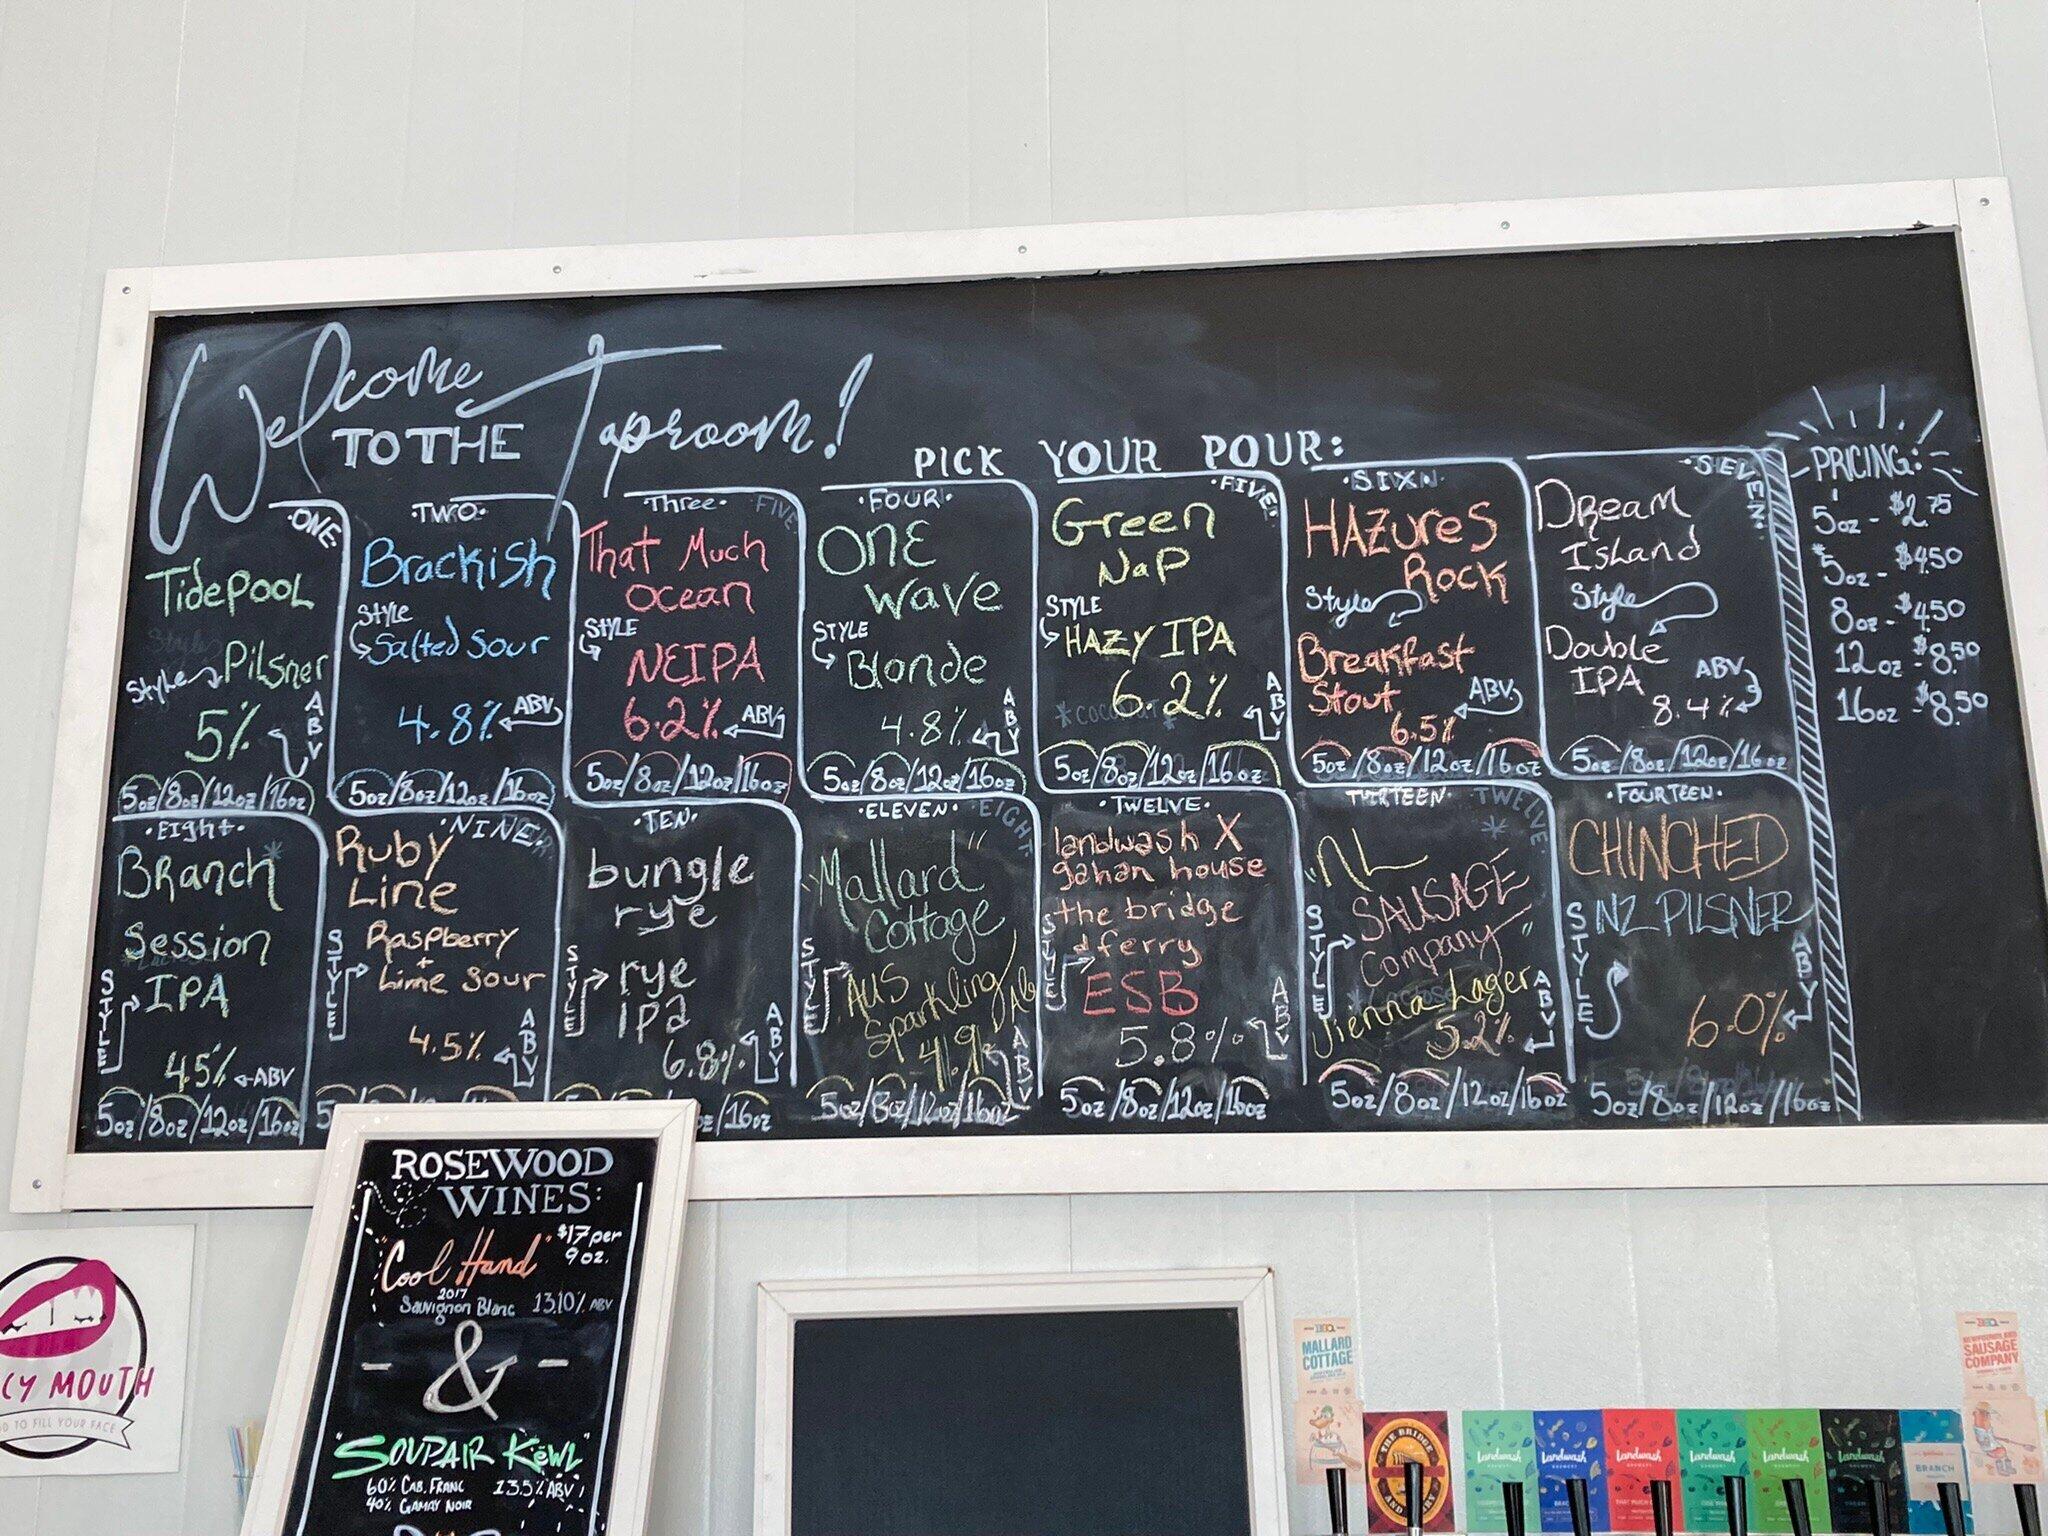 Welcome
TO THE Taproom!
PICK YOUR POUR:
·ONE·
TidePOOL
Style
Pilsner
5%
ABV
5oz/8oz/12oz/16oz
·TWO·
Brackish
STYLE
Salted Sour
4.8% ABV
5oz/8oz/12oz/16oz
·Three· FIVE
That Much
Ocean
STYLE
NEIPA
6.2% ABV
5oz/8oz/12oz/16oz
·FOUR·
ONE
Wave
STYLE
Blonde
4.8%
ABV
5oz/8oz/12oz/16oz
·FIVE·
Green
NaP
STYLE
HAZY IPA
6.2%
ABV
5oz/8oz/12oz/16oz
·SIXN·
HAZURES
ROCK
Style
Breakfast
Stout ABV
6.5%
5oz/8oz/12oz/16oz
·SEVEN·
DREAM
ISLAND
Style
Double
IPA ABV
8.4%
5oz/8oz/12oz/16oz
PRICING:
5oz - $2.75
*5oz - $4.50
8oz - $4.50
12oz - $8.50
16oz - $8.50
·Eight·
BRanch*
Session
IPA
STYLE
4.5% ABV
5oz/8oz/12oz/16oz
·NINE·
Ruby
Line
STYLE
Raspberry
+
Lime Sour
4.5%
ABV
·TEN·
bungle
rye
STYLE
rye
ipa
6.8%
ABV
oz/16oz
·ELEVEN· EIGHT
"Mallard"
Cottage
STYLE
AUS
Sparkling Ale
4.9%
ABV
5oz/8oz/12oz/16oz
·TWELVE·
landwash X
gahan house
the bridge
& ferry
STYLE
ESB
5.8%
ABV
5oz/8oz/12oz/16oz
THIRTEEN TWELVE
"NL
SAUSAGE
Company"
STYLE
Vienna Lager
5.2%
ABV
5oz/8oz/12oz/16oz
·FOURTEEN·
CHINCHED
NZ PILSNER
STYLE
6.0%
ABV
5oz/8oz/12oz/16oz
ROSEWOOD
WINES:
"Cool Hand" $17 per
9 oz.
2017
Sauvignon Blanc 13.10% ABV
- & -
"SOUPAIR KëWL"
60% CAB. FRANC 13.5% ABV
40% GAMAY NOIR
CY MOUTH
D TO FILL YOUR FACE
MALLARD
COTTAGE
THE BRIDGE
AND
Landwash
BREWERY
Landwash
BREWERY
Landwash
BREWERY
Landwash
BREWERY
Landwash
BREWERY
Landwash
BREWERY
BRANCH
NEWFOUNDLAND
SAUSAGE
COMPANY